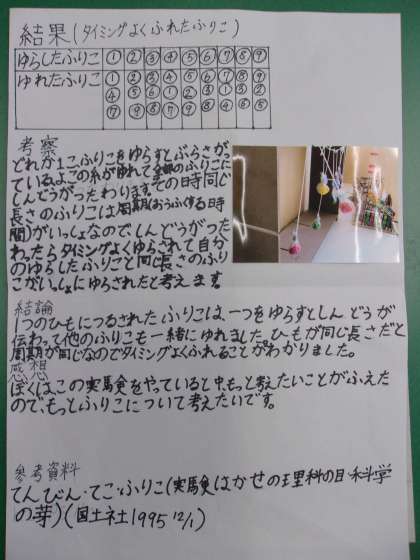 結果(タイミングよくふれたふりこ)
ゆらしたふりこ ① ② ③ ④ ⑤ ⑥ ⑦ ⑧ ⑨
ゆれたふりこ ① ② ③ ④ ⑤ ⑥ ⑦ ⑧ ⑨
考察
どれか1こふりこをゆらすとぶらさがっ
ている、よこの糸がゆれて全部のふりこに
しんどうがったわります。その時同じ
長さのふりこは周期(おうふくする時
間)がいっしょなのでしんどうがった
わったらタイミングよくゆらされて自分
のゆらしたふりこと同じ長さのふり
こがいっしょにゆらされたと考えます。
結論
1つのひもにつるされたふりこは、一つをゆらすとしんどうが
伝わって他のふりこも一緒にゆれました。ひもが同じ長さだと
周期が同じなのでタイミングよくふれることがわかりました。
感想
ぼくは、この実験をやっていると中、もっと考えたいことがふえた
ので、もっとふりこについて考えたいです。
参考資料
てんびん・てこ・ふりこ(実験はかせの理科の目・科学
の芽)(国土社1995 12/1)